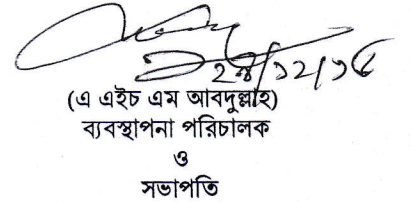 (এ এইচ এম আবদুল্লাহ)
ব্যবস্থাপনা পরিচালক
ও
সভাপতি